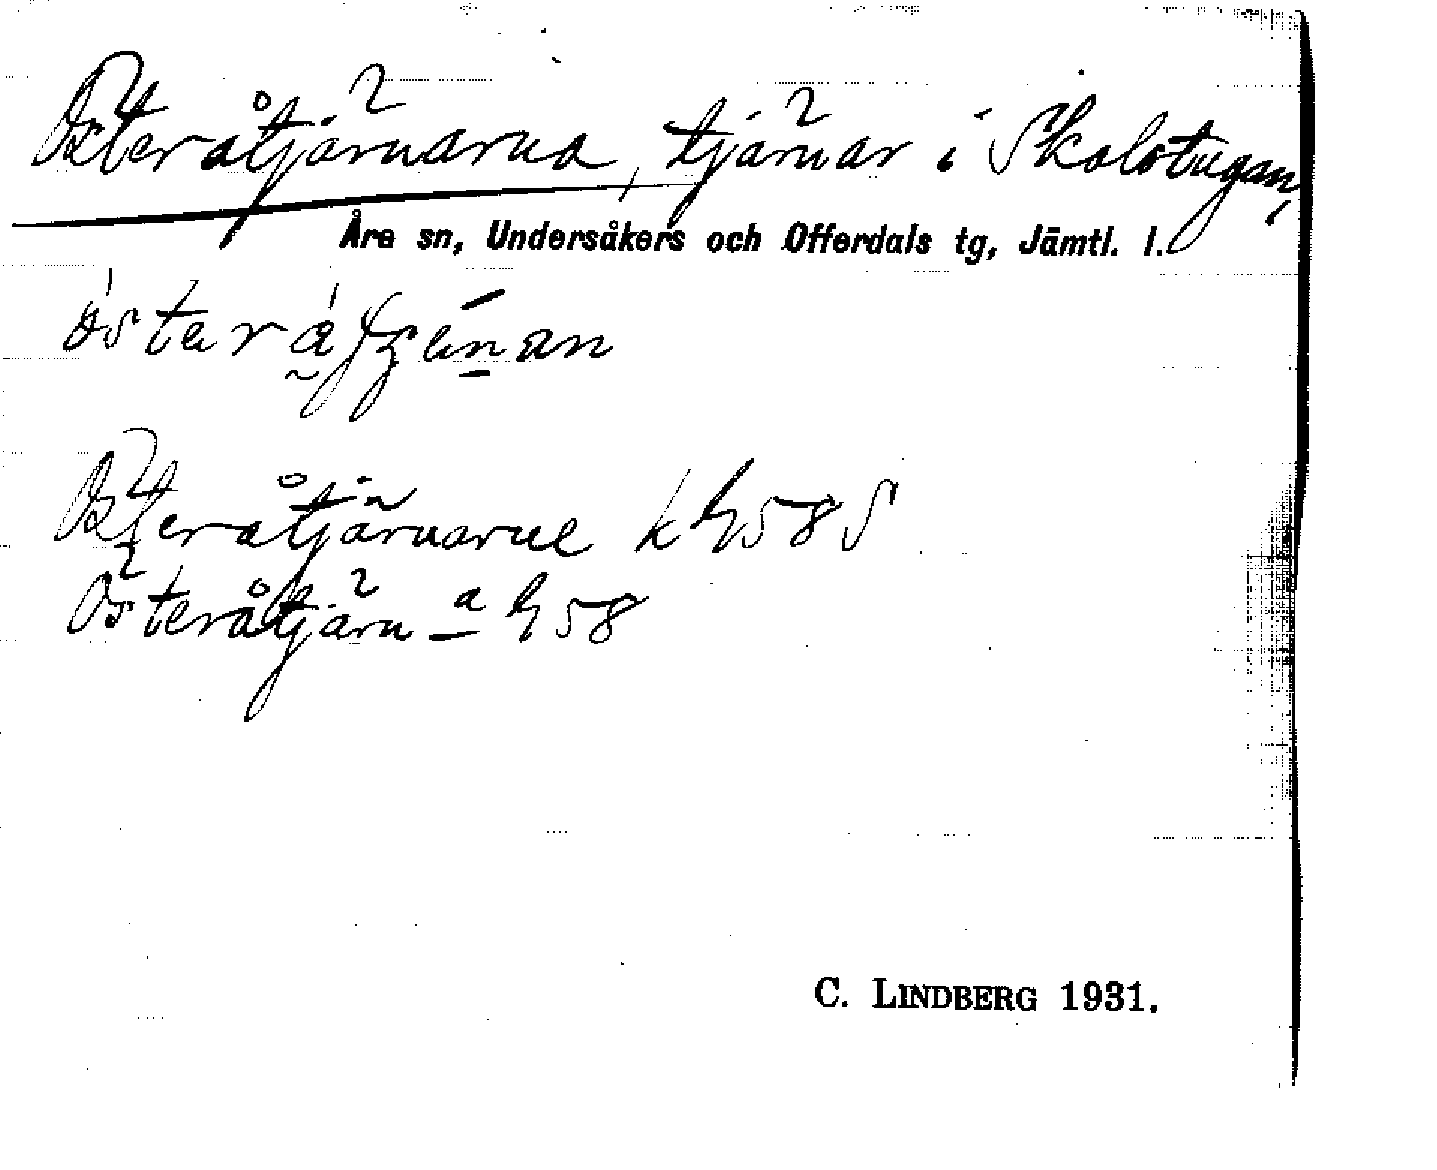 Österåtjärnarna, tjärnar i Skalstugan,
Åre sn, Undersåkers och Offerdals tg, Jämtl. l.
Österåtjärnarne k h 58 S
Österåtjärn – a h 58
C. LINDBERG 1931.